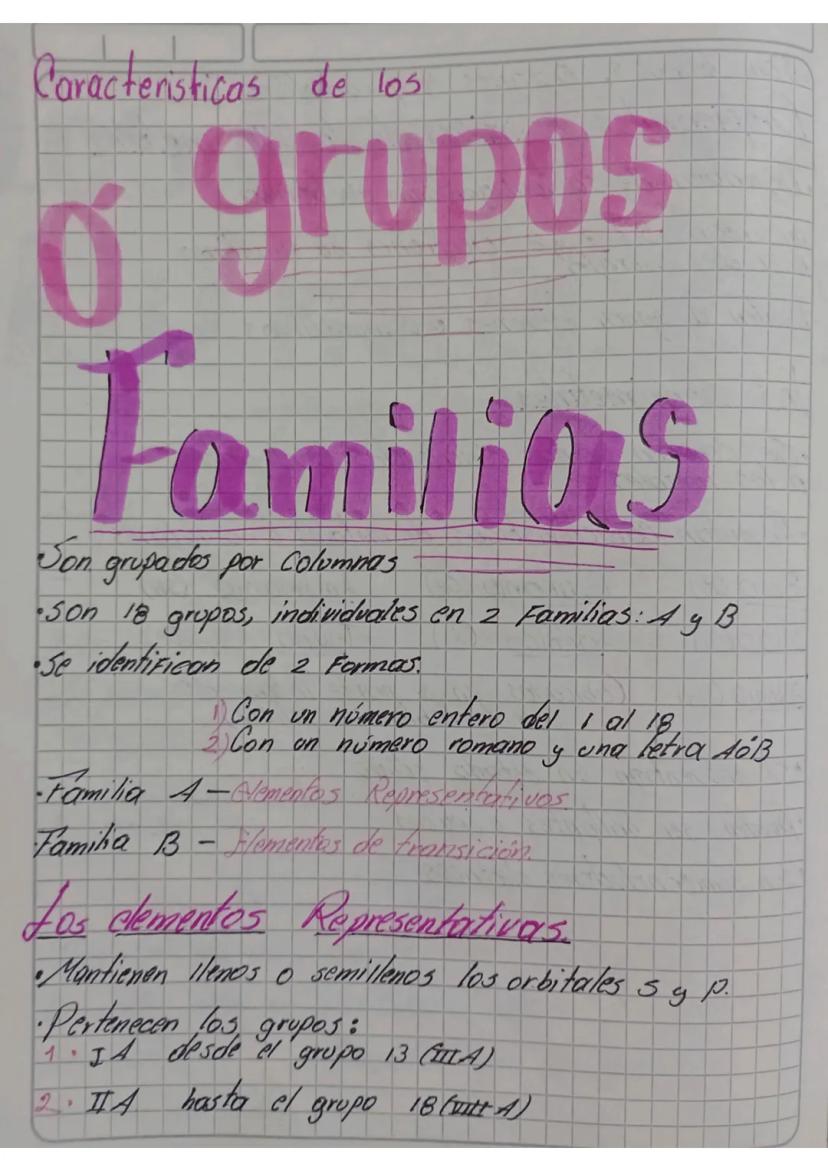 Caracteristicas de los
grupos
Ó
Familias
Son grupados por Columnas
•Son 18 grupos, individuales en 2 Familias: A y B
•Se identifican de 2 Formas:
1) Con un número entero del 1 al 18
2) Con un número romano y una letra A ó B
•Familia A – Elementos Representativos
Familia B – Elementos de transición.
Los elementos Representativas.
•Mantienen llenos o semillenos los orbitales s y p.
•Pertenecen los grupos:
1. IA desde el grupo 13 (IIIA)
2. IIA hasta el grupo 18 (VIII A)